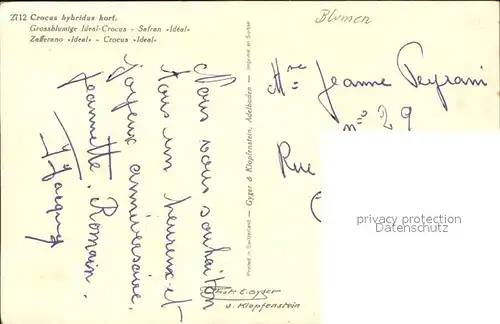 2712 Crocus hybridus hort.
Grossblumige Ideal-Crocus - Safran «Idéal»
Zafferano «Ideal» - Crocus «Ideal»
Blumen
Nous vous souhaiton
tous un heureux et
joyeux anniversaire.
Jeannette. Romain.
J. Jacquy
Printed in Switzerland — Gyger & Klopfenstein, Adelboden — Imprimé en Suisse
Phot. E. Gyger
u. Klopfenstein
Mme Jeanne Peyrani
n° 29
Rue
privacy protection
Datenschutz